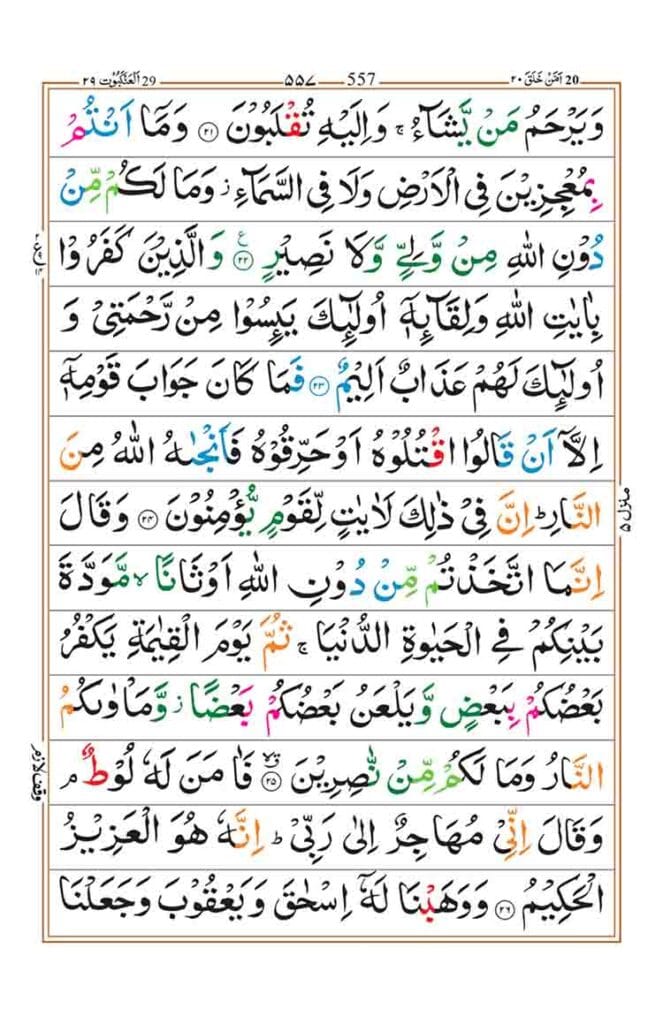 20 اَمَّنْ خَلَقَ ٢٠ 557 ۵۵۷ 29 اَلْعَنْكَبُوْت ٢٩
وَيَرْحَمُ مَنْ يَّشَآءُ ۚ وَاِلَيْهِ تُقْلَبُوْنَ ۝٢١ وَمَآ اَنْتُمْ
بِمُعْجِزِيْنَ فِي الْاَرْضِ وَلَا فِي السَّمَآءِ ؗ وَمَا لَكُمْ مِّنْ
دُوْنِ اللّٰهِ مِنْ وَّلِيٍّ وَّلَا نَصِيْرٍ ۝٢٢ ع وَالَّذِيْنَ كَفَرُوْا
بِاٰيٰتِ اللّٰهِ وَلِقَآئِهٖٓ اُولٰٓئِكَ يَئِسُوْا مِنْ رَّحْمَتِيْ وَ
اُولٰٓئِكَ لَهُمْ عَذَابٌ اَلِيْمٌ ۝٢٣ فَمَا كَانَ جَوَابَ قَوْمِهٖٓ
اِلَّآ اَنْ قَالُوا اقْتُلُوْهُ اَوْ حَرِّقُوْهُ فَاَنْجٰىهُ اللّٰهُ مِنَ
النَّارِ ؕ اِنَّ فِيْ ذٰلِكَ لَاٰيٰتٍ لِّقَوْمٍ يُّؤْمِنُوْنَ ۝٢٤ وَقَالَ
منزل ۵
اِنَّمَا اتَّخَذْتُمْ مِّنْ دُوْنِ اللّٰهِ اَوْثَانًا ۙ مَّوَدَّةَ
بَيْنِكُمْ فِي الْحَيٰوةِ الدُّنْيَا ۚ ثُمَّ يَوْمَ الْقِيٰمَةِ يَكْفُرُ
بَعْضُكُمْ بِبَعْضٍ وَّيَلْعَنُ بَعْضُكُمْ بَعْضًا ؗ وَّمَاْوٰىكُمُ
النَّارُ وَمَا لَكُمْ مِّنْ نّٰصِرِيْنَ ۝٢٥ۖۗ فَاٰمَنَ لَهٗ لُوْطٌ ۘ
وقف لازم
وَقَالَ اِنِّيْ مُهَاجِرٌ اِلٰى رَبِّيْ ؕ اِنَّهٗ هُوَ الْعَزِيْزُ
الْحَكِيْمُ ۝٢٦ وَوَهَبْنَا لَهٗٓ اِسْحٰقَ وَيَعْقُوْبَ وَجَعَلْنَا